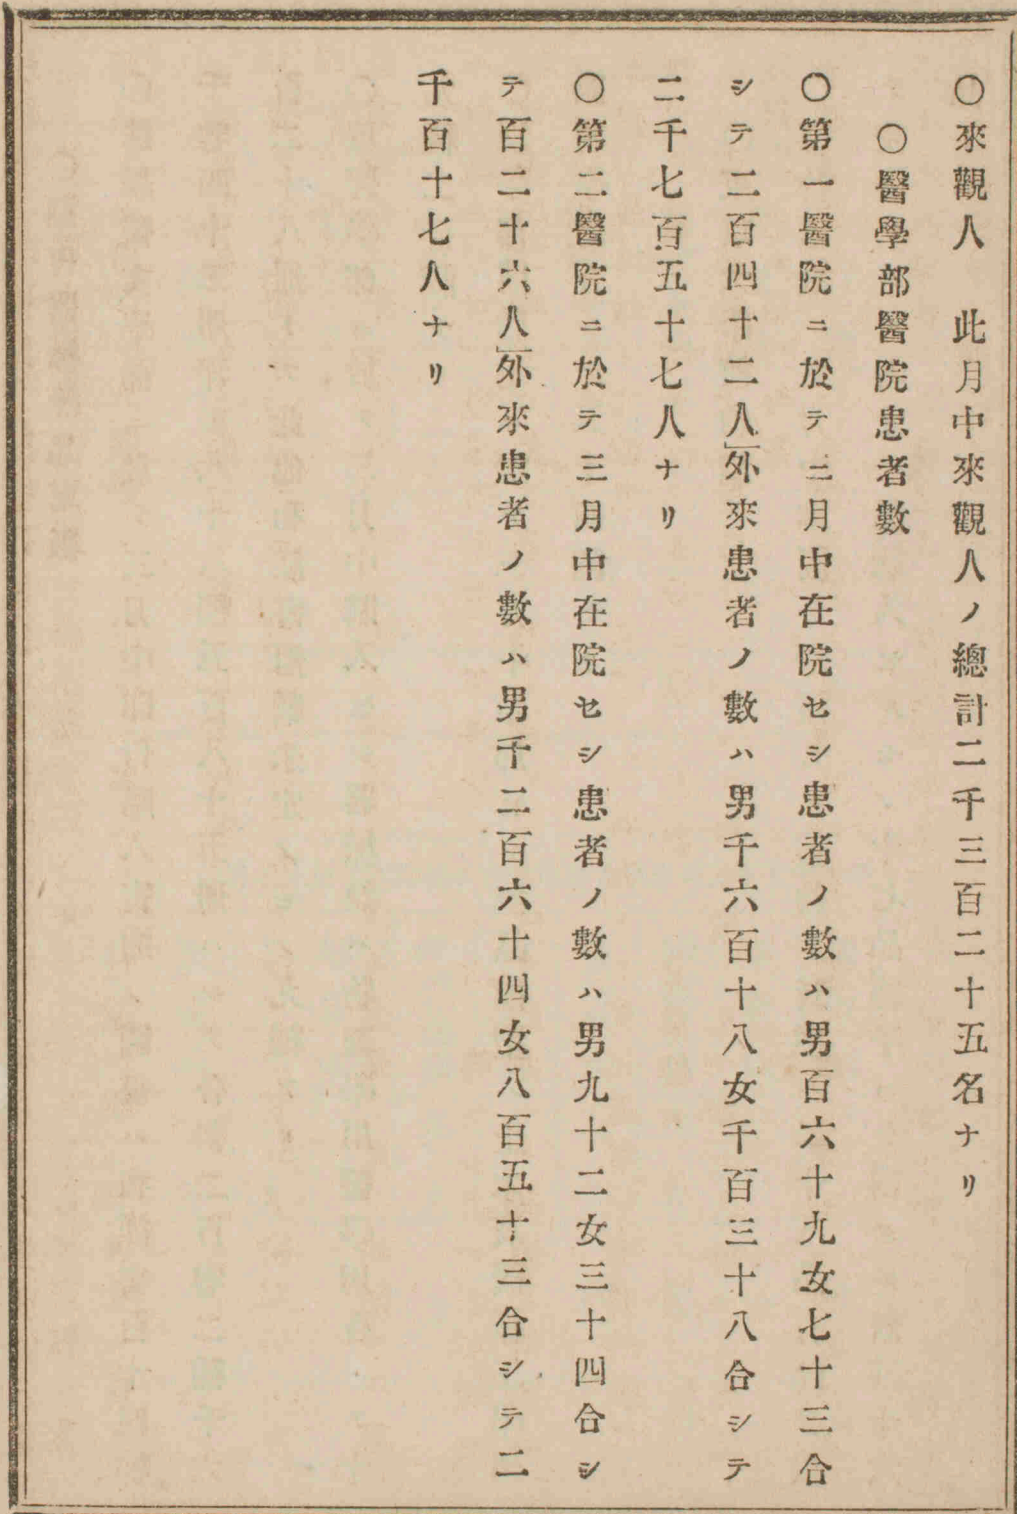 〇來觀人　此月中來觀人ノ總計二千三百二十五名ナリ
〇醫學部醫院患者數
〇第一醫院ニ於テ二月中在院セシ患者ノ數ハ男百六十九女七十三合
シテ二百四十二人外來患者ノ數ハ男千六百十八女千百三十八合シテ
二千七百五十七人ナリ
〇第二醫院ニ於テ三月中在院セシ患者ノ數ハ男九十二女三十四合シ
テ百二十六人外來患者ノ數ハ男千二百六十四女八百五十三合シテ二
千百十七人ナリ